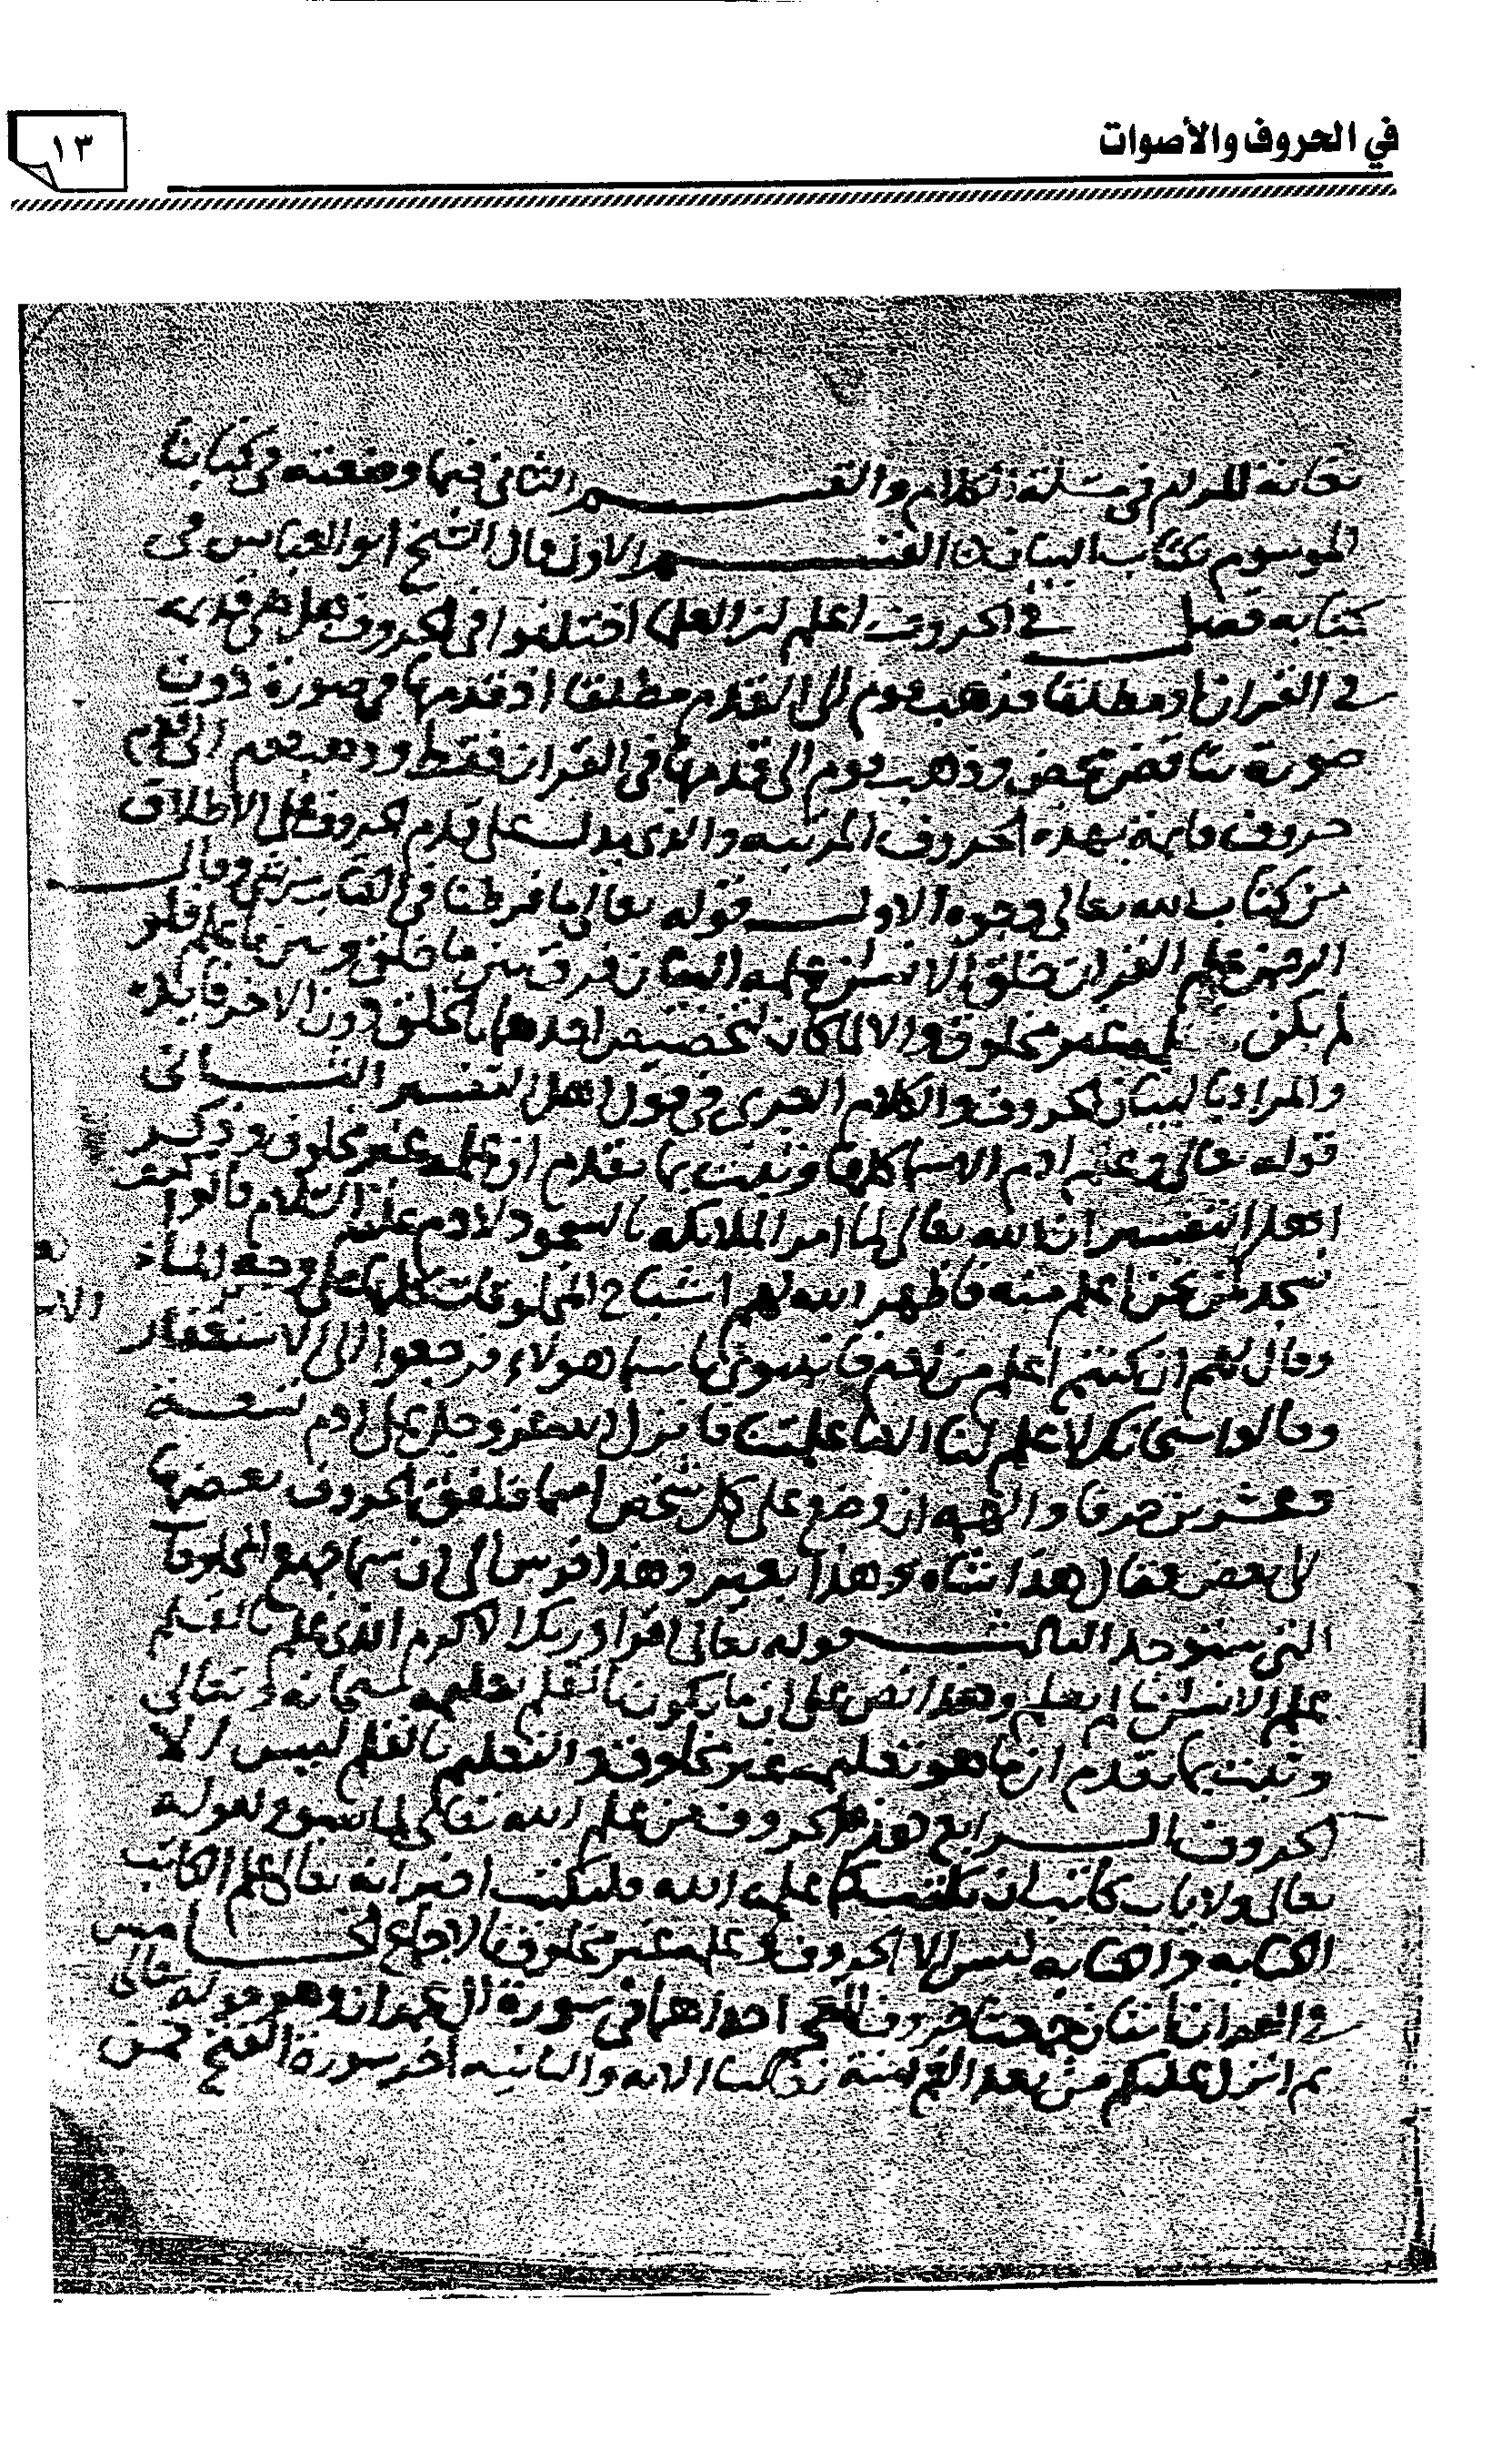 في الحروف والأصوات
١٣
المرام في مسلة الكلام والقسم الثاني فيما وضعته في كتابنا
الموسوم بكتاب البيان القسم الاول قال الشيخ ابو العباس في
كتابه فصل في الحروف اعلم ان العلما اختلفوا في الحروف هل هي قديمه
في القران او مطلقا فذهب قوم الى القدم مطلقا اذ قدمها في صورة دون
صورة تناقض محض وذهب قوم الى قدمها في القران فقط وذهب بعضهم الى قدم
حروف قايمة بهذه الحروف المرتبه والذي يدل على قدم الحروف على الاطلاق
من كتاب الله تعالى وجوه الاول قوله تعالى ما فرطنا في الكتاب من شي وقال
الرحمن علم القران خلق الانسان علمه البيان فرق بين ما خلق وبين ما علم فلو
لم يكن علمه غير مخلوق والا لما كان لتخصيص احدهما بالخلق دون الاخر فايده
والمراد بالبيان الحروف والكلام العربي في قول اهل التفسير الثاني
قوله تعالى وعلم ادم الاسما كلها وثبت بما تقدم ان علمه غير مخلوق وذكر
اهل التفسير ان الله تعالى لما امر الملايكه بالسجود لادم عليه السلام قالوا كيف
نسجد لمن نحن اعلم منه فاظهر الله لهم اشباح المخلوقات كلها على وجه الماء
وقال لهم ان كنتم اعلم من ادم فانبيوني باسما هولاء فرجعوا الى الاستغفار
وقالوا سبحانك لا علم لنا الا ما علمتنا فانزل الله عز وجل على ادم تسعة
وعشرين حرفا والهمه ان وضع على كل شخص اسما فلفق الحروف بعضها
الى بعض فقال هذا شاه وهذا بعير وهذا فرس الى ان سما جميع المخلوقات
التي ستوجد الثالث قوله تعالى اقرا وربك الاكرم الذي علم بالقلم
علم الانسان ما لم يعلم وهذا نص على ان ما يكون بالقلم تعليمه سبحانه وتعالى
وثبت بما تقدم ان ما هو تعليمه غير مخلوق والتعليم بالقلم ليس الا
الحروف الرابع هذه الحروف من علم الله تعالى لقوله
تعالى ولا ياب كاتب ان يكتب كما علمه الله فليكتب اخبر انه تعالى علم الكاتب
الكتابه والكتابه ليس الا الحروف وعلمه غير مخلوق بالاجماع الخامس
في القران ايتان جمعتا حروف المعجم احداهما في سورة ال عمران وهو قوله تعالى
ثم انزل عليكم من بعد الغم امنة نعاسا الايه والثانيه اخر سورة الفتح محمد